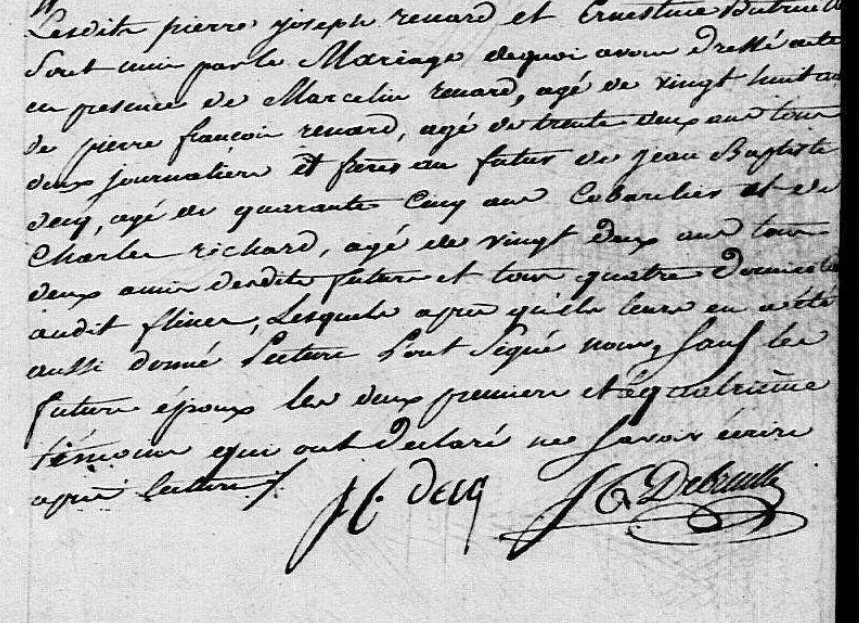 Lesdits pierre joseph renard et Ernestine
Sont unis par le Mariage dequoi avons Dressé acte
en presence de Marcelin renard, agé de vingt huit ans
de pierre françois renard, agé de trente deux ans tous
deux journaliers et freres au futur de jean Baptiste
decq, agé de quarante Cinq ans Cabaretier et de
Charles richard, agé de vingt deux ans tous
deux amis desdits futurs et tous quatre Domiciliés
audit flines, Lesquels après qu'il leurs en a été
aussi donné Lecture L'ont Signé nous, Sauf les
futurs époux les deux premiers et quatrième
témoins qui ont Declaré ne Savoir écrire
après lecture
J B decq J B